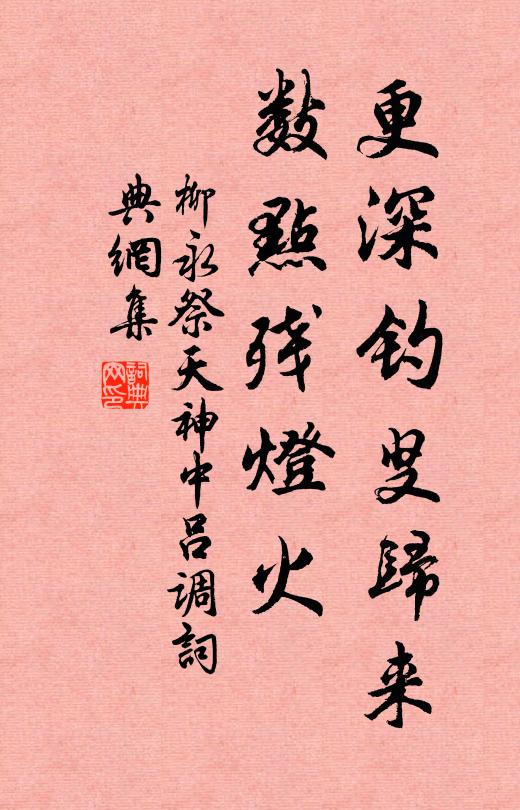 更深钓叟歸来
数點残燈火
柳永祭天神中吕調詞
典網集
詞典网印